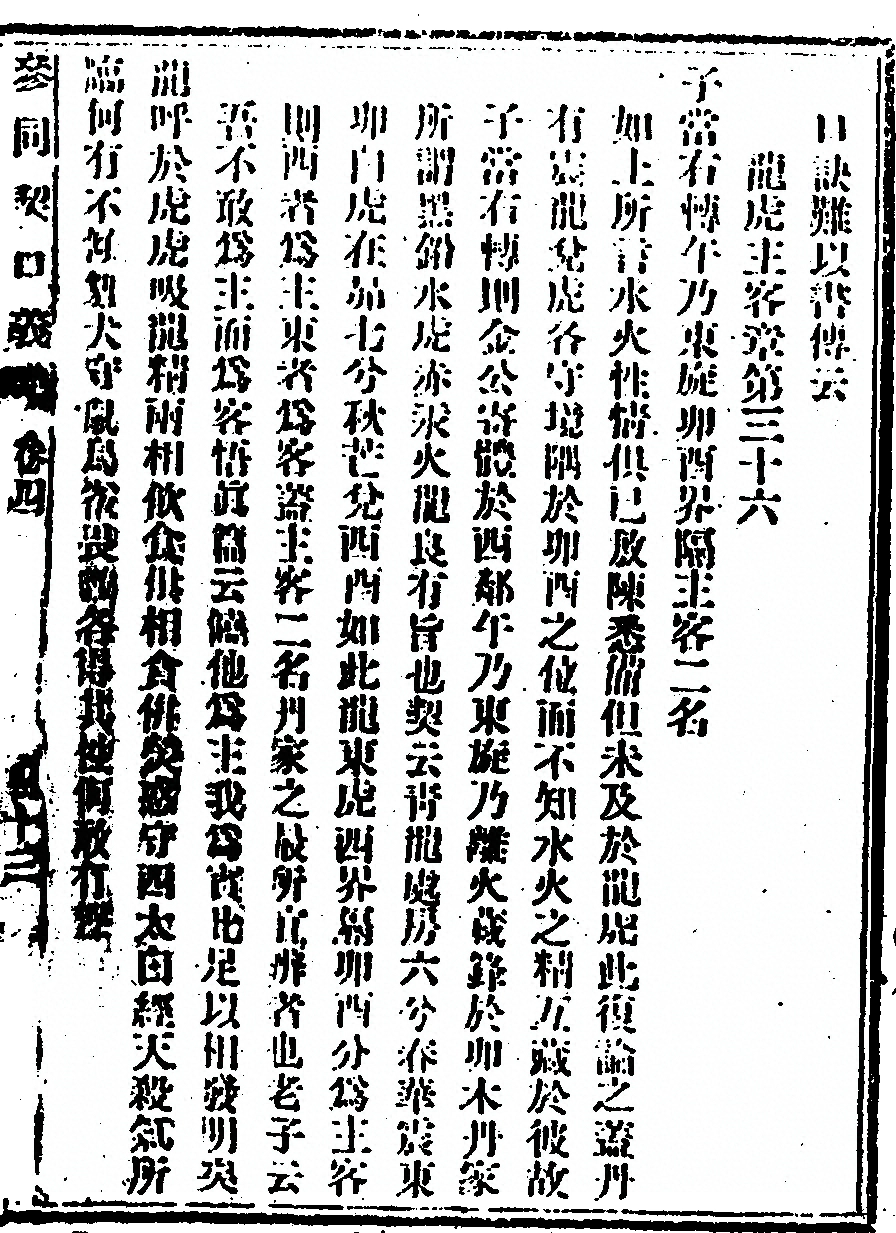 口訣難以書傳云
龍虎主客章第三十六
子當右轉午乃東旋卯酉界隔主客二名
如上所言水火性情俱已敷陳悉備但未及於龍虎此復論之蓋丹
有震龍兌虎各守境隅於卯酉之位而不知水火之精互藏於彼故
子當右轉則金公寄體於西鄰午乃東旋乃離火藏鋒於卯木丹家
所謂黑鉛水虎赤汞火龍良有旨也契云青龍處房六兮春華震東
卯白虎在昴七兮秋芒兌西酉如此龍東虎西界隔卯酉分爲主客
則西者爲主東者爲客蓋主客二名丹家之最所宜辨者也老子云
吾不敢爲主而爲客悟眞篇云饒他爲主我爲賓也足以相發明矣
龍呼於虎虎吸龍精兩相飲食俱相貪併熒惑守西太白經天殺氣所
臨何有不傾貍犬守鼠鳥雀畏鸇各得其性何敢有聲
參同契口義 卷四